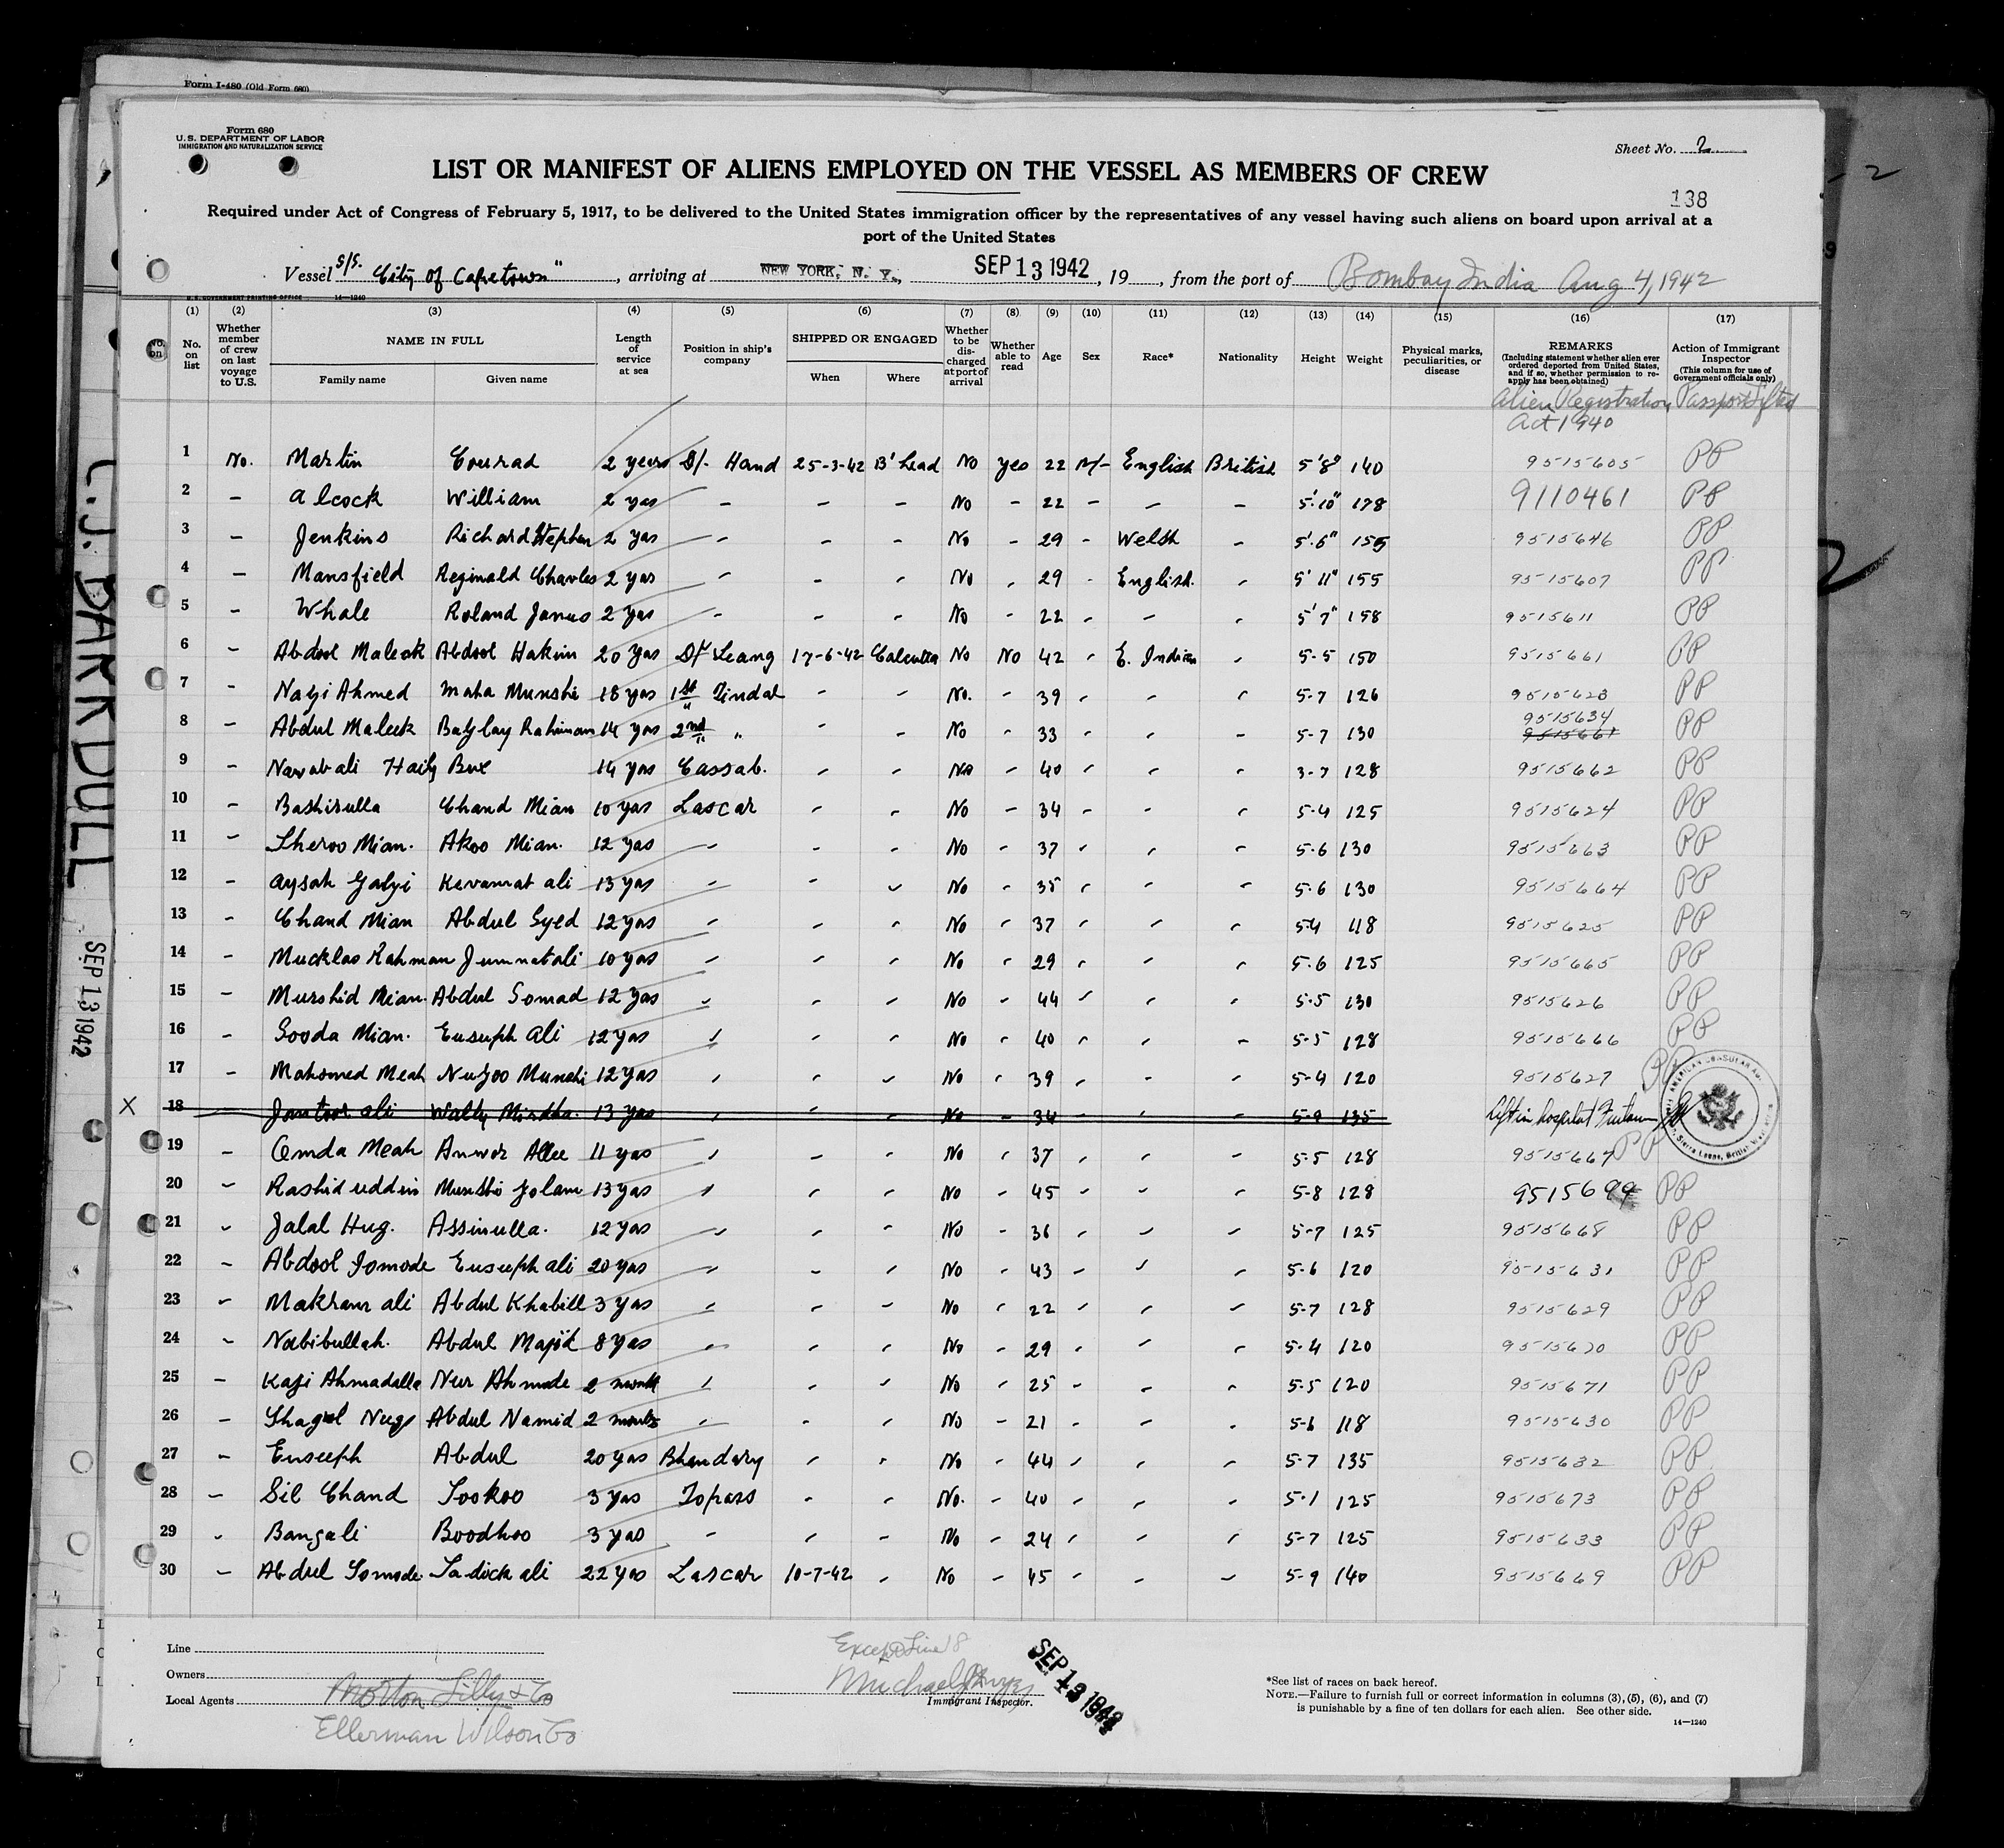 Form I-480 (Old Form 680)
Form 680
U. S. DEPARTMENT OF LABOR
IMMIGRATION AND NATURALIZATION SERVICE
Sheet No. 2
LIST OR MANIFEST OF ALIENS EMPLOYED ON THE VESSEL AS MEMBERS OF CREW
138
Required under Act of Congress of February 5, 1917, to be delivered to the United States immigration officer by the representatives of any vessel having such aliens on board upon arrival at a
port of the United States
Vessel S/S. "City of Capetown", arriving at NEW YORK, N. Y., SEP 13 1942, 19, from the port of Bombay India Aug 4, 1942
U. S. GOVERNMENT PRINTING OFFICE 14—1240
(1) (2) (3) (4) (5) (6) (7) (8) (9) (10) (11) (12) (13) (14) (15) (16) (17)
No. on list
Whether member of crew on last voyage to U.S.
NAME IN FULL
Family name Given name
Length of service at sea
Position in ship's company
SHIPPED OR ENGAGED
When Where
Whether to be discharged at port of arrival
Whether able to read
Age Sex Race* Nationality Height Weight
Physical marks, peculiarities, or disease
REMARKS
(Including statement whether alien ever ordered deported from United States, and if so, whether permission to reapply has been obtained)
Action of Immigrant Inspector
(This column for use of Government officials only)
Alien Registration Act 1940
Passport Lifted
1 No. Martin Conrad 2 years S/. Hand 25-3-42 B'Head No yes 22 M/- English British 5'8" 140 9515605 PP
2 - Alcock William 2 yas - - - No - 22 - - - 5'10" 178 9110461 PP
3 - Jenkins Richard Stephen 2 yas - - - No - 29 - Welsh - 5'.6" 155 9515646 PP
4 - Mansfield Reginald Charles 2 yas - - - No - 29 - English. - 5'11" 155 9515607 PP
5 - Whale Roland James 2 yas - - - No - 22 - - - 5'7" 158 9515611 PP
6 - Abdool Maleck Abdool Hakim 20 yas D/ Serang 17-6-42 Calcutta No No 42 - E. Indian - 5-5 150 9515661 PP
7 - Nazi Ahmed Maha Munshi 18 yas 1st Tindal - - No. - 39 - - - 5-7 126 9515623 PP
8 - Abdul Maleck Bazlay Rahiman 14 yas 2nd " - - No - 33 - - - 5-7 130 9515634 9515661 PP
9 - Nawabali Haily Bux 14 yas Cassab. - - No - 40 - - - 3-7 128 9515662 PP
10 - Bashirulla Chand Mian 10 yas Lascar - - No - 34 - - - 5-4 125 9515624 PP
11 - Sheroo Mian. Akoo Mian. 12 yas - - - No - 37 - - - 5-6 130 9515663 PP
12 - Aysah Galzi Keramat ali 13 yas - - - No - 35 - - - 5-6 130 9515664 PP
13 - Chand Mian Abdul Syed 12 yas - - - No - 37 - - - 5-4 118 9515625 PP
14 - Mucklas Rahman Jumnatali 10 yas - - - No - 29 - - - 5.6 125 9515665 PP
15 - Murshid Mian. Abdul Somad 12 yas - - - No - 44 - - - 5-5 130 9515626 PP
16 - Sooda Mian. Eusuph Ali 12 yas - - - No - 40 - - - 5-5 128 9515666 PP
17 - Mahomed Meah Nuzoo Munshi 12 yas - - - No - 39 - - - 5-4 120 9515627 PP
X 18 - ali Wally Mirdha. 13 yas - - - No - 34 - - - 5-9 135 Left in hospital
19 - Emda Meah Anwar Allee 11 yas - - - No - 37 - - - 5-5 128 9515667 PP
20 - Rashid uddin Munshi Golam 13 yas - - - No - 45 - - - 5-8 128 9515699 PP
21 - Jalal Huq. Assinulla. 12 yas - - - No - 36 - - - 5-7 125 9515668 PP
22 - Abdool Somode Eusuph ali 20 yas - - - No - 43 - - - 5-6 120 9515631 PP
23 - Makram ali Abdul Khabill 3 yas - - - No - 22 - - - 5-7 128 9515629 PP
24 - Nabibullah. Abdul Majid 8 yas - - - No - 29 - - - 5-4 120 9515670 PP
25 - Kazi Ahmadulla Nur Ahmade 2 month - - - No - 25 - - - 5-5 120 9515671 PP
26 - Abdul Namid 2 months - - - No - 21 - - - 5-6 118 9515630 PP
27 - Euseeph Abdul 20 yas Bhandary - - No - 44 - - - 5-7 135 9515632 PP
28 - Sil Chand Sookoo 3 yas Topass - - No. - 40 - - - 5-1 125 9515673 PP
29 - Bangali Boodhoo 3 yas - - - No - 24 - - - 5-7 125 9515633 PP
30 - Abdul Somode Sadick ali 22 yas Lascar 10-7-42 - No - 45 - - - 5-9 140 9515669 PP
Line
Owners
Local Agents Morton Lilly & Co
Ellerman Wilson Co
Except Line 18
Michael
Immigrant Inspector.
SEP 13 1942
*See list of races on back hereof.
NOTE.—Failure to furnish full or correct information in columns (3), (5), (6), and (7)
is punishable by a fine of ten dollars for each alien. See other side.
14—1240
C. J. BARKDULL
SEP 13 1942